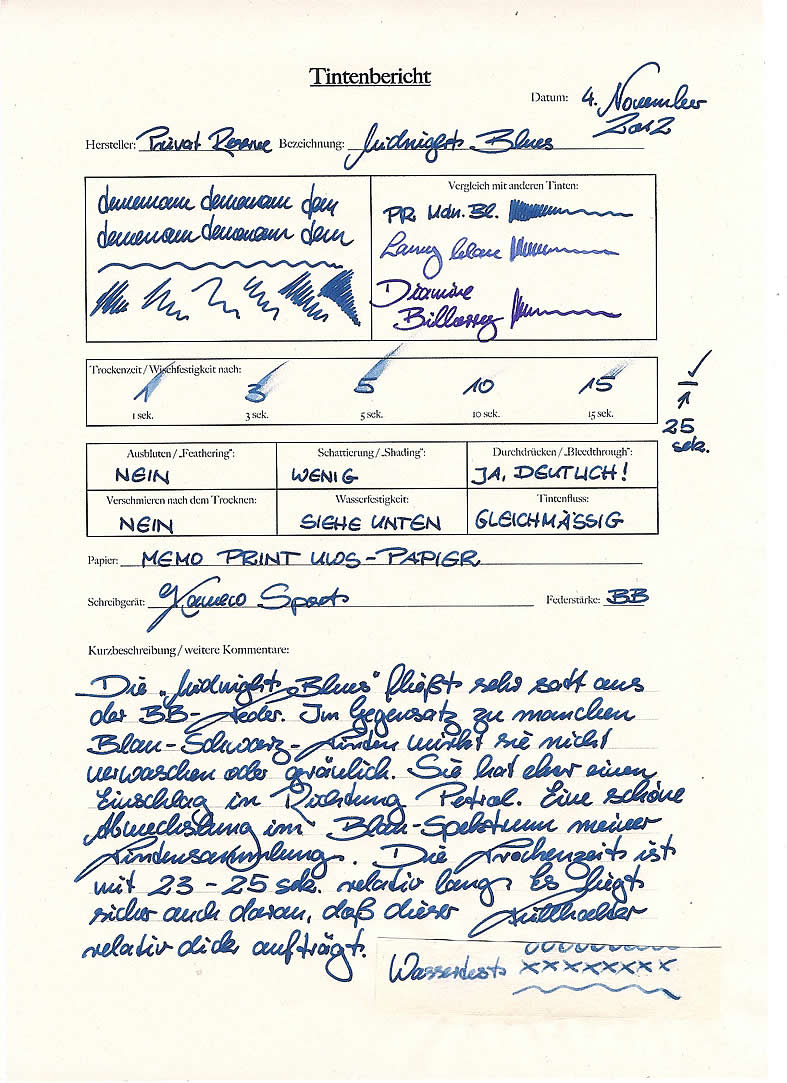 Tintenbericht
Datum: 4. November
2012
Hersteller: Privat Reserve Bezeichnung: Midnight Blues
Vergleich mit anderen Tinten:
PR Mdn. Bl.
Lamy blau
Diamine
Bilberry
Trockenzeit / Wischfestigkeit nach:
1 3 5 10 15
1 sek. 3 sek. 5 sek. 10 sek. 15 sek.
✓
1
25
sek.
Ausbluten / „Feathering": Schattierung / „Shading": Durchdrücken / „Bleedthrough":
NEIN WENIG JA, DEUTLICH!
Verschmieren nach dem Trocknen: Wasserfestigkeit: Tintenfluss:
NEIN SIEHE UNTEN GLEICHMÄSSIG
Papier: MEMO PRINT UWS-PAPIER
Schreibgerät: Kaweco Sport Federstärke: BB
Kurzbeschreibung / weitere Kommentare:
Die „Midnight Blues" fließt sehr satt aus
der BB-Feder. Im Gegensatz zu manchen
Blau-Schwarz-Tinten wirkt sie nicht
verwaschen oder gräulich. Sie hat eher einen
Einschlag in Richtung Petrol. Eine schöne
Abwechslung im Blau-Spektrum meiner
Tintensammlung. Die Trockenzeit ist
mit 23 - 25 sek. relativ lang. Es liegt
sicher auch daran, daß dieser Füllhalter
relativ dick aufträgt.
Wassertest xxxxxxxx